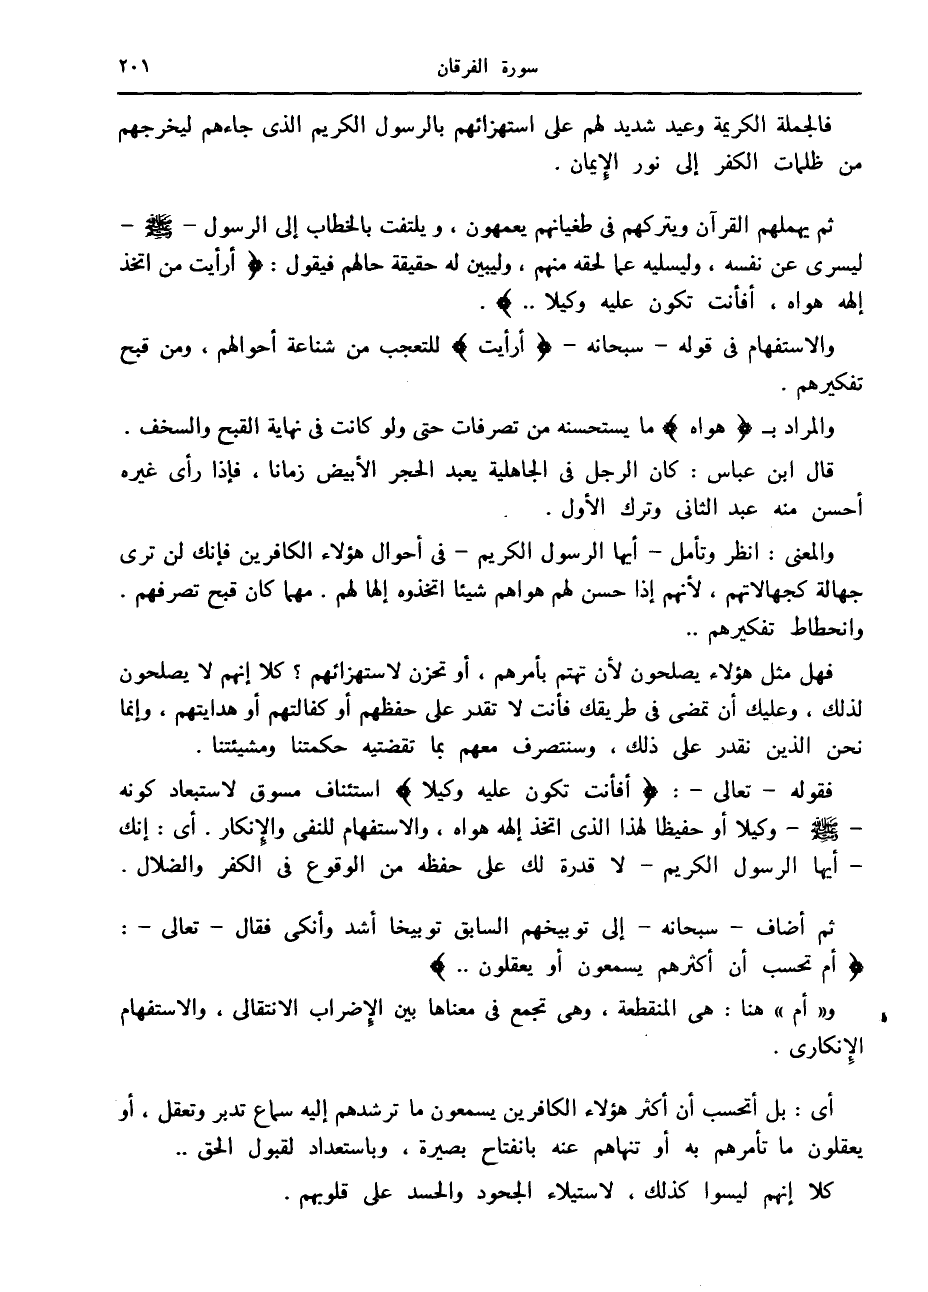 سورة الفرقان ٢٠١
فالجملة الكريمة وعيد شديد لهم على استهزائهم بالرسول الكريم الذى جاءهم ليخرجهم
من ظلمات الكفر إلى نور الإيمان .
ثم يهملهم القرآن ويتركهم فى طغيانهم يعمهون ، ويلتفت بالخطاب إلى الرسول – ﷺ –
ليسرى عن نفسه ، وليسليه عما لحقه منهم ، وليبين له حقيقة حالهم فيقول : ﴿ أرأيت من اتخذ
إلهه هواه ، أفأنت تكون عليه وكيلا .. ﴾ .
والاستفهام فى قوله – سبحانه – ﴿ أرأيت ﴾ للتعجب من شناعة أحوالهم ، ومن قبح
تفكيرهم .
والمراد بـ ﴿ هواه ﴾ ما يستحسنه من تصرفات حتى ولو كانت فى نهاية القبح والسخف .
قال ابن عباس : كان الرجل فى الجاهلية يعبد الحجر الأبيض زمانا ، فإذا رأى غيره
أحسن منه عبد الثانى وترك الأول .
والمعنى : انظر وتأمل – أيها الرسول الكريم – فى أحوال هؤلاء الكافرين فإنك لن ترى
جهالة كجهالاتهم ، لأنهم إذا حسن لهم هواهم شيئا اتخذوه إلها لهم . مهما كان قبح تصرفهم .
وانحطاط تفكيرهم ..
فهل مثل هؤلاء يصلحون لأن تهتم بأمرهم ، أو تحزن لاستهزائهم ؟ كلا إنهم لا يصلحون
لذلك ، وعليك أن تمضى فى طريقك فأنت لا تقدر على حفظهم أو كفالتهم أو هدايتهم ، وإنما
نحن الذين نقدر على ذلك ، وسنتصرف معهم بما تقضتيه حكمتنا ومشيئتنا .
فقوله – تعالى – : ﴿ أفأنت تكون عليه وكيلا ﴾ استئناف مسوق لاستبعاد كونه
– ﷺ – وكيلا أو حفيظا لهذا الذى اتخذ إلهه هواه ، والاستفهام للنفى والإنكار . أى : إنك
– أيها الرسول الكريم – لا قدرة لك على حفظه من الوقوع فى الكفر والضلال .
ثم أضاف – سبحانه – إلى توبيخهم السابق توبيخا أشد وأنكى فقال – تعالى – :
﴿ أم تحسب أن أكثرهم يسمعون أو يعقلون .. ﴾
و« أم » هنا : هى المنقطعة ، وهى تجمع فى معناها بين الإضراب الانتقالى ، والاستفهام
الإنكارى .
أى : بل أتحسب أن أكثر هؤلاء الكافرين يسمعون ما ترشدهم إليه سماع تدبر وتعقل ، أو
يعقلون ما تأمرهم به أو تنهاهم عنه بانفتاح بصيرة ، وباستعداد لقبول الحق ..
كلا إنهم ليسوا كذلك ، لاستيلاء الجحود والحسد على قلوبهم .